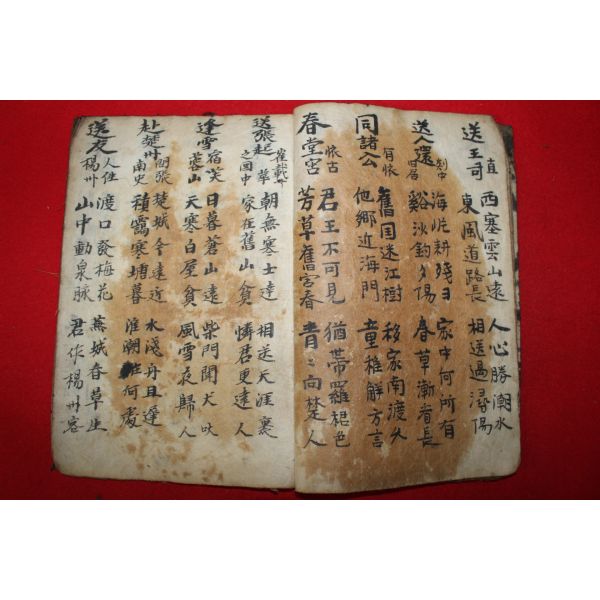 送王司直
西塞雲山遠 人心勝潮水
東風道路長 相送過潯陽
送人還剡中旧居
海片耕殘日 家中何所有
谿沙釣夕陽 春草漸看長
同諸公有懷
舊国迷江樹 移家南渡久
他鄉近海門 童稚解方言
春堂宮懷古
君王不可見 猶帶羅裙色
芳草舊宮春 青〻向楚人
送張起崔載華之閩中
朝無寒士達 相送天涯裏
家在舊山貧 憐君更遠人
逢雪宿芙蓉山
日暮蒼山遠 柴門聞犬吠
天寒白屋貧 風雪夜歸人
赴楚州問張南史
楚城今遠近 水淺舟且遲
積靄寒塘暮 淮潮 何處
送友人住楊州
渡口發梅花 蕪城春草生
山中動泉脉 君作楊州客